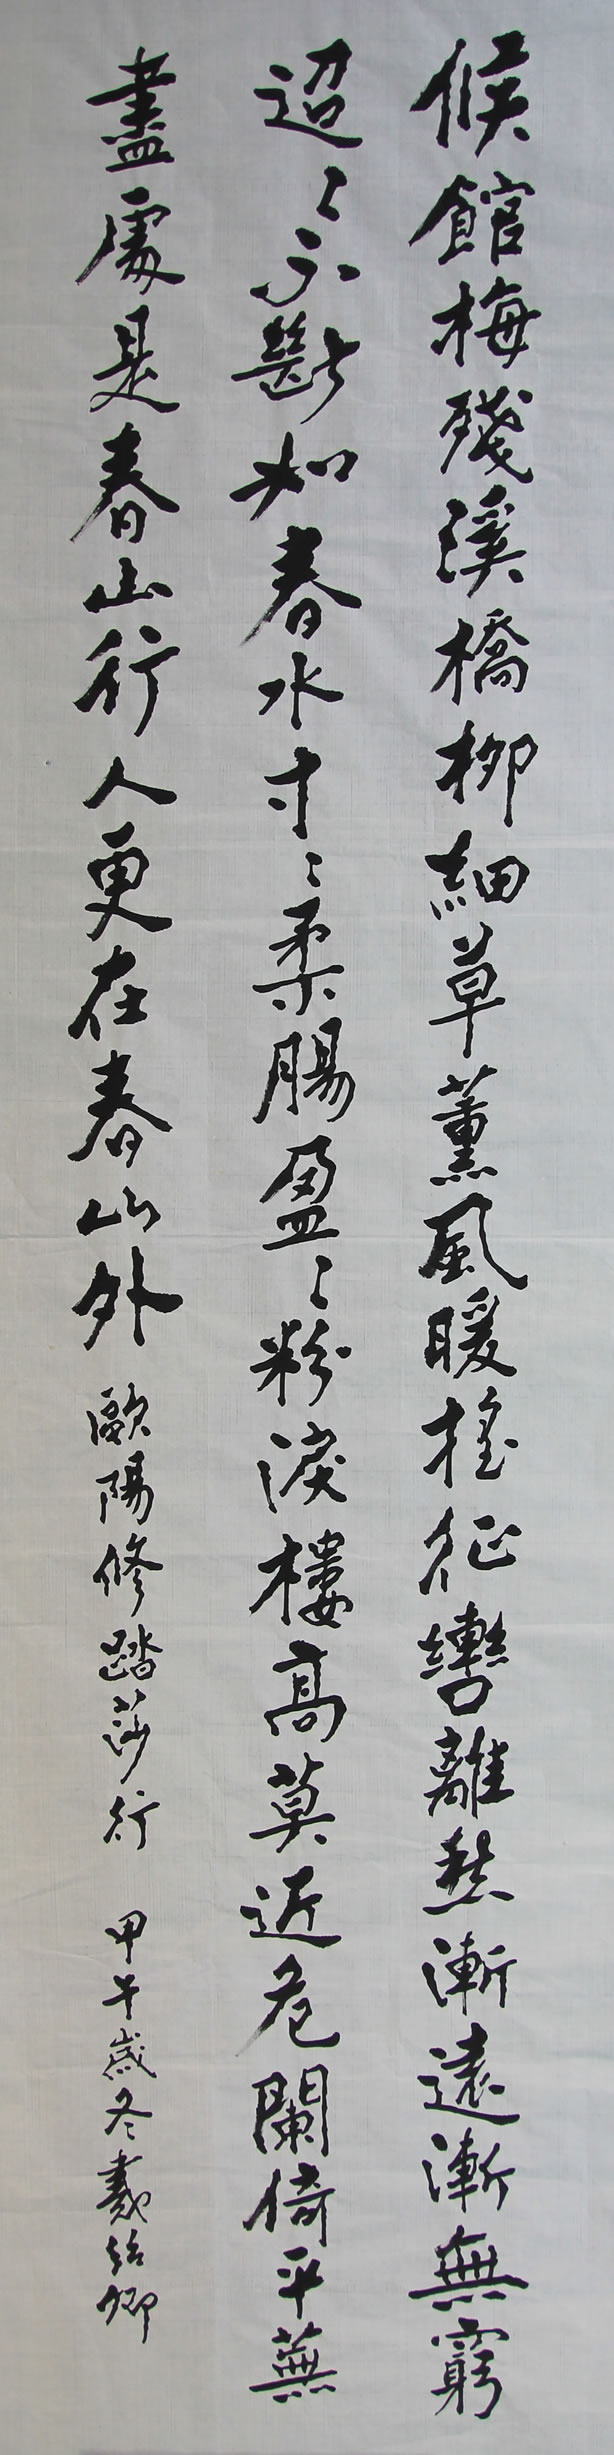 候館梅殘溪橋柳細草薰風暖搖征轡離愁漸遠漸無窮
迢〻不斷如春水寸〻柔腸盈〻粉淚樓高莫近危闌倚平蕪
盡處是春山行人更在春山外 歐陽修踏莎行 甲午歲冬